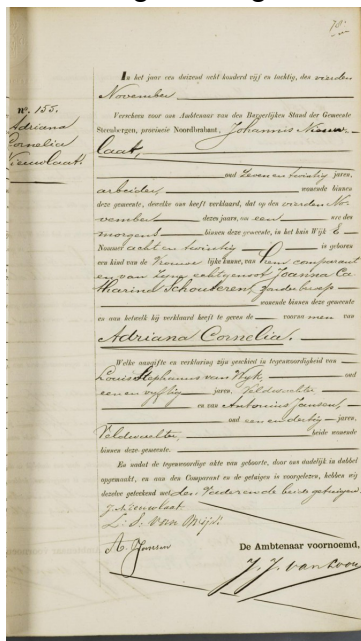 78.
In het jaar een duizend acht honderd vijf en tachtig, den vierden
November
nº. 155.
Adriana
Cornelia
Nieuwlaat
Verscheen voor ons Ambtenaar van den Burgerlijken Stand der Gemeente
Steenbergen, provincie Noordbrabant, Johannis Nieuw-
laat,
oud zeven en twintig jaren,
arbeider, wonende binnen
deze gemeente, dewelke ons heeft verklaard, dat op den vierden No
vember dezes jaars, om een ure des
morgens binnen deze gemeente, in het huis Wijk E
Nommer acht en twintig is geboren
een kind van de Vrouwe lijke kunne, van hem comparant
en van zijne echtgenoot Joanna Ca
tharina Schouteren, zonder beroep
wonende binnen deze gemeente
en aan hetwelk hij verklaard heeft te geven de voorna men van
Adriana Cornelia.
Welke aangifte en verklaring zijn geschied in tegenwoordigheid van
Louis Stephanus van Wijk, oud
een en vijftig jaren, Veldwachter,
en van Antonius Jansen,
oud een en dertig jaren,
Veldwachter, beide wonende
binnen deze gemeente.
En omdat de tegenwoordige akte van geboorte, door ons dadelijk in dubbel
opgemaakt, en aan den Comparant en de getuigen is voorgelezen, hebben wij
dezelve geteekend met den Vader en de beide getuigen.
J. Nieuwlaat
L. S. van Wijk.
A. Jansen
De Ambtenaar voornoemd,
J. J. van Loon